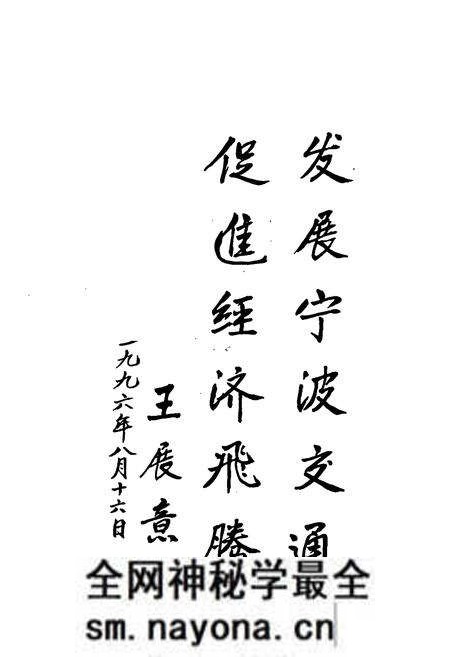 发展宁波交通
促進經济飛騰
王展意
一九九六年八月十六日
全网神秘学最全
sm.nayona.cn